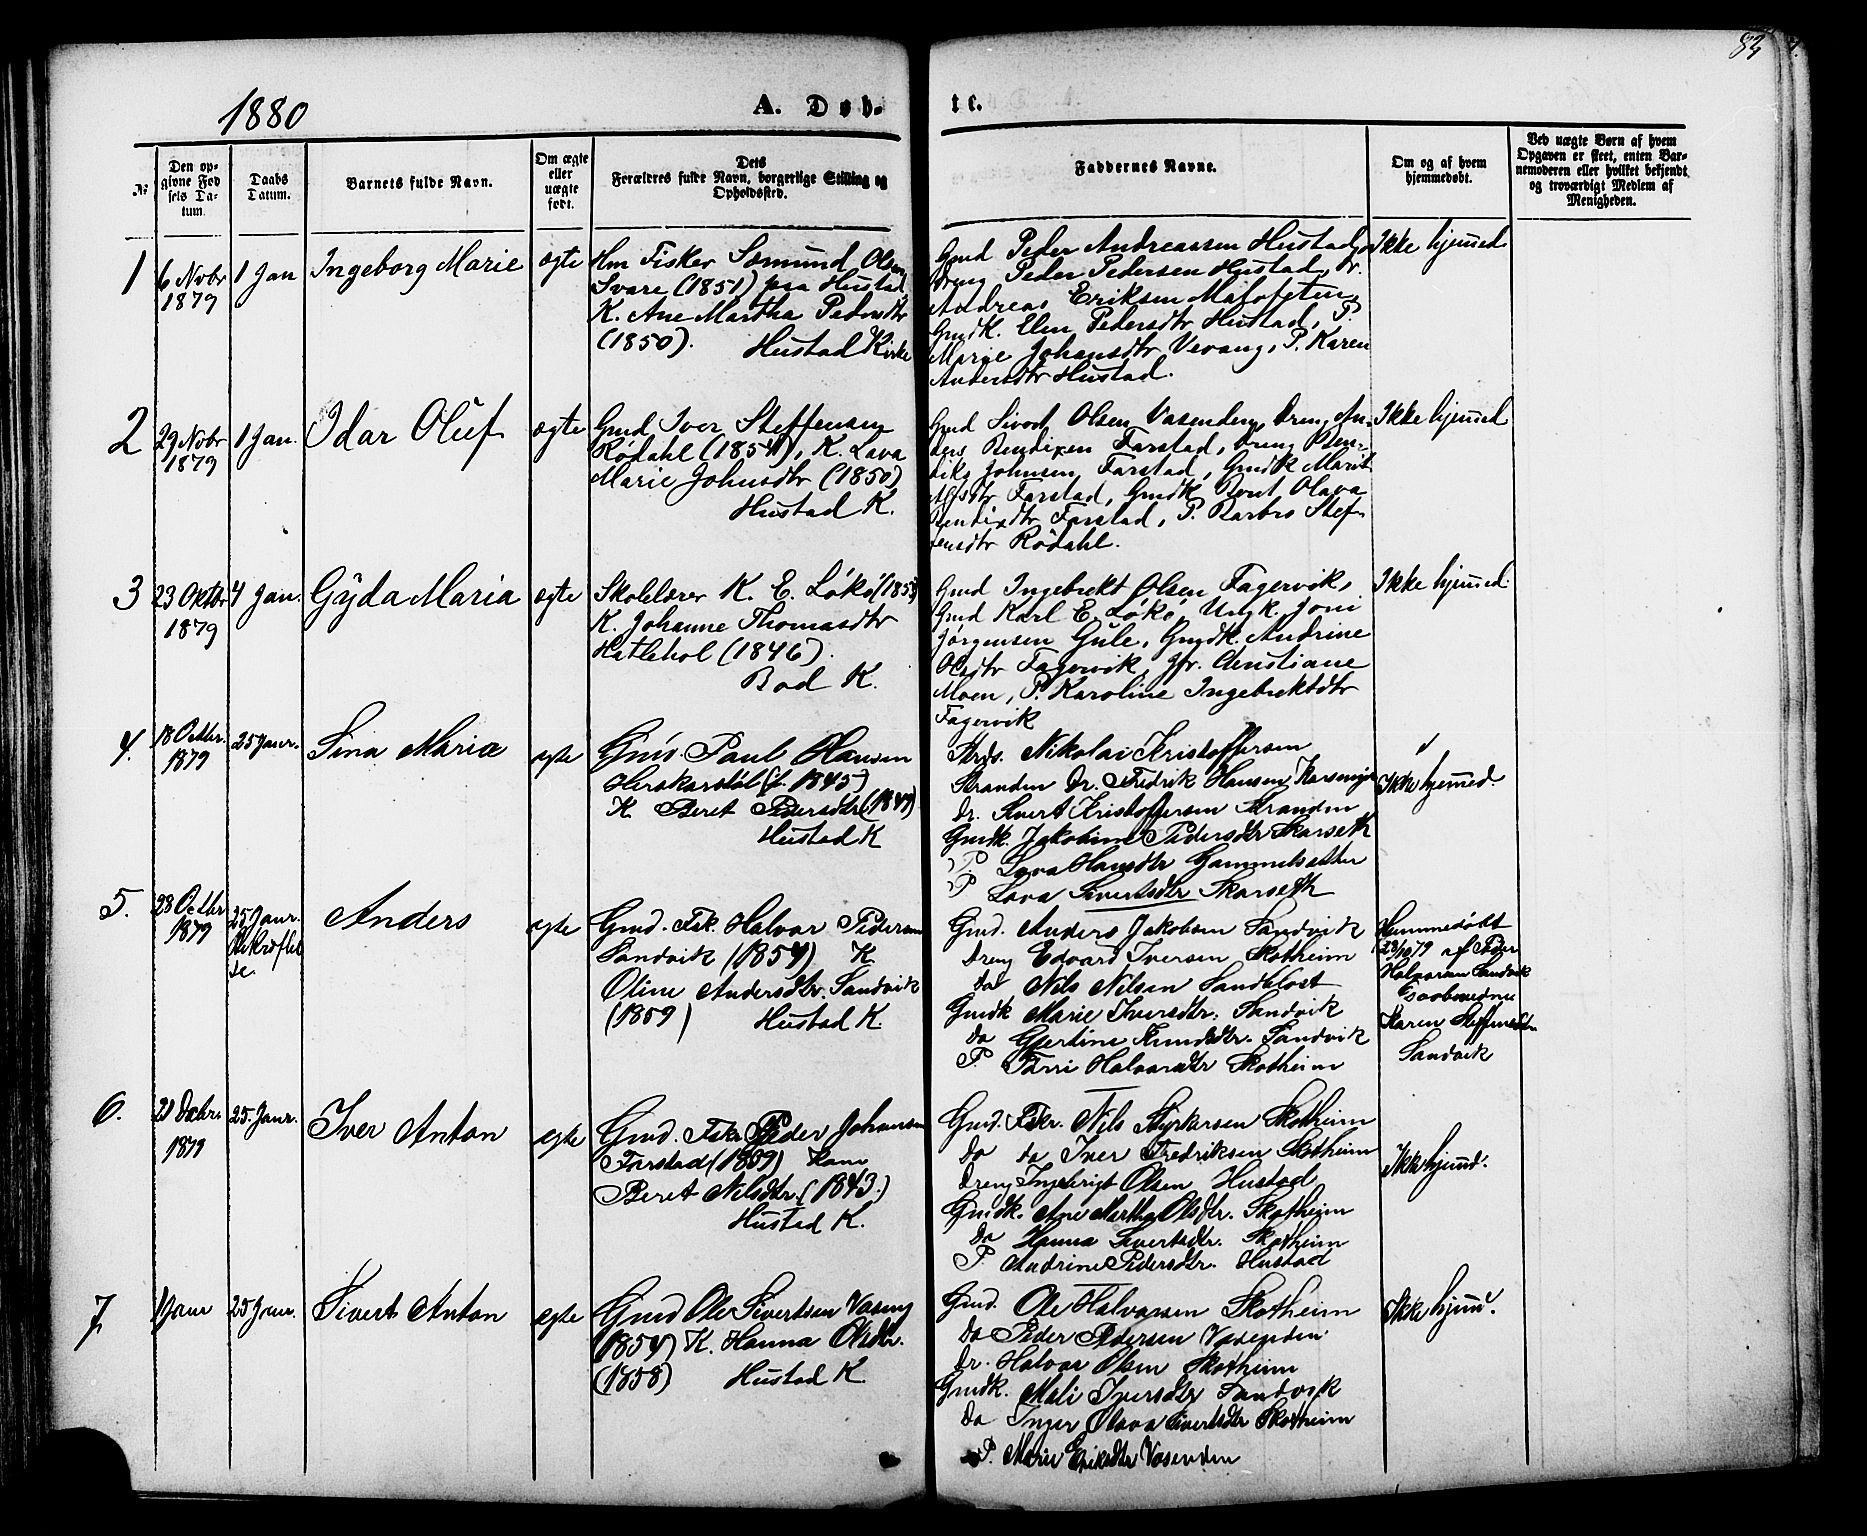 83
1880
A. Døb-
te.
№
Den op-
givne Fød
sels Da-
tum.
Daabs
Datum.
Barnets fulde Navn.
Om ægte
eller
uægte
født.
Dets
Forældres fulde Navn, borgerlige Stilling og
Opholdssted.
Faddernes Navne.
Om og af hvem
hjemmedøbt.
Ved uægte Børn af hvem
Opgaven er skeet, enten Bar-
nemoderen eller hvilket bekjendt
og troværdigt Medlem af
Menigheden.
1
6 Novbr
1879
1 Jan
Ingeborg Marie
ægte
Hm Fisker Sæmund Olsen
Svare (1851) paa Hustad
K. Ane Martha Pedersdtr
(1850). Hustad Kirke
Gmd Peder Andreassen Hustad,
Dreng Peder Pedersen Hustad, Dr.
Andreas Eriksen
Gmdk. Elen Pedersdtr Hustad, P.
Marie Johansdtr Vevang, P. Karen
Andersdtr Hustad.
Ikke hjemmed
2
29 Novbr
1879
1 Jan.
Idar Oluf
ægte
Gmd Iver Steffensen
Rødahl (1854), K. Lava
Marie Johnsdtr (1850)
Hustad K.
Gmd Sivert Olsen Vasenden, Dreng An-
ders Bendixen Farstad, Dreng Ben-
diks Johnsen Farstad, Gmdk Marit
Farstad, Gmdk Berit Olava
Bendixdtr Farstad, P. Barbro Stef-
fensdtr Rødahl.
Ikke hjemmed
3
23 Oktbr
1879
4 Jan.
Gyda Maria
ægte
Skolelærer K. E. Løkø (185
K. Johanne Thomasdtr
Hatlehol (1846).
Bod K.
Gmd Ingebrekt Olsen Fagervik,
Gmd Karl E. Løkø, Ungk. Joni
Jørgensen Gule, Gmdk. Andrine
Olsdtr Fagervik, Jfr. Christiane
Moen, P. Karoline Ingebrektdtr
Fagervik
Ikke hjemmed.
4.
18 Octbr.
1879
25 Janr.
Sina Maria
ægte
Gmd. Paul Hansen
Herskarstøl (f. 1845)
K Beret Pedersdtr (1849)
Hustad K
Strds. Nikolai Kristoffersen
Stranden Dr. Fredrik Hansen
Dr. Sivert Kristoffersen Stranden
Gmdk. Jakobine Pedersdtr Skarseth
P. Lava Hansdtr Gammelsæter
P Lava Sivertsdtr Skarseth
Ikke hjemmed.
5.
28 Octbr
1879
25 Janr.
Bekræftel
se
Anders
ægte
Gmd. Fsk. Halvor Pedersen
Sandvik (1854) K
Oline Andersdtr. Sandvik
(1859) Hustad K.
Gmd. Anders Jakobsen Sandvik
Dreng Edvard Iversen Skotheim
do Nils Nilsen Sandblost
Gmdk Marie Iversdtr. Sandvik
do Gjertine Knudsdtr. Sandvik
P. Halvorsdtr Skotheim
Hjemmedøbt
28/10 79 af Peder
Halvorsen Sandvik
Karen Steffensdtr
Sandvik
6.
21 Decbr.
1879
25 Janr.
Iver Anton
ægte
Gmd. Fskr Peder Johansen
Farstad (1859) Kone
Beret Nilsdtr. (1843.)
Hustad K.
Gmd. Fskr. Nils Styrkarsen Skotheim
do do Iver Fredriksen Skotheim
Dreng Ingebrigt Olsen Hustad
Gmdk. Ane Martha Olsdtr. Skotheim
do Hanna Sivertsdtr. Skotheim
P. Andrine Pedersdtr. Hustad
Ikke hjemd.
7.
1 Janr
25 Janr.
Sivert Anton
ægte
Gmd Ole Sivertsen Vaseng
(1854) K. Hanna Olsdtr.
(1858) Hustad K.
Gmd. Ole Halvorsen Skotheim
do Peder Pedersen Vasenden
Dr. Halvor Olsen Skotheim
Gmdk. Mali Iversdtr Sandvik
do Inger Olava Sivertsdtr Skotheim
P. Marie Eriksdtr Vasenden
Ikke hjemd.